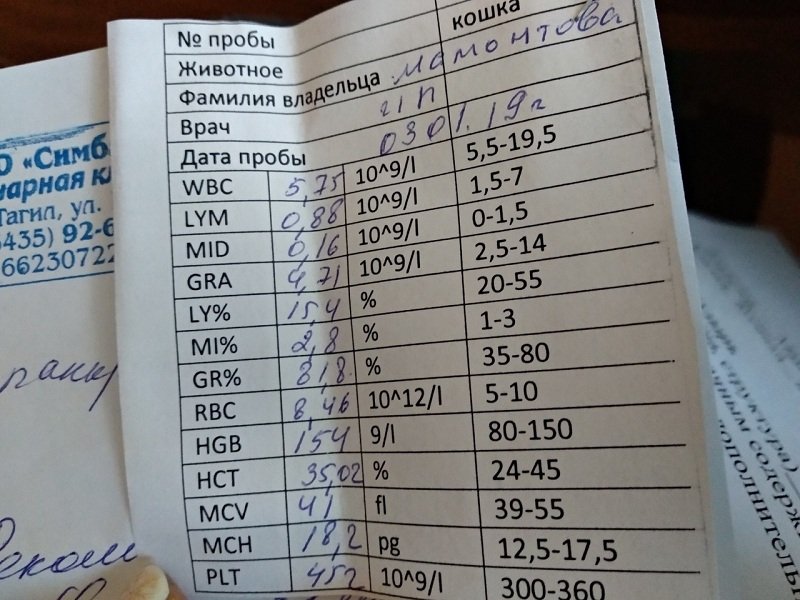 № пробы
Животное кошка
Фамилия владельца Мамонтова
Врач
Дата пробы 03 01. 19 г
WBC 5,75 10^9/l 5,5-19,5
LYM 0,88 10^9/l 1,5-7
MID 0,16 10^9/l 0-1,5
GRA 4,71 10^9/l 2,5-14
LY% 15,4 % 20-55
MI% 2,8 % 1-3
GR% 81,8 % 35-80
RBC 8,46 10^12/l 5-10
HGB 154 9/l 80-150
HCT 35,02 % 24-45
MCV 41 fl 39-55
MCH 18,2 pg 12,5-17,5
PLT 452 10^9/l 300-360
О «Симб
Тагил, ул.
435) 92-6
66230722
структура)